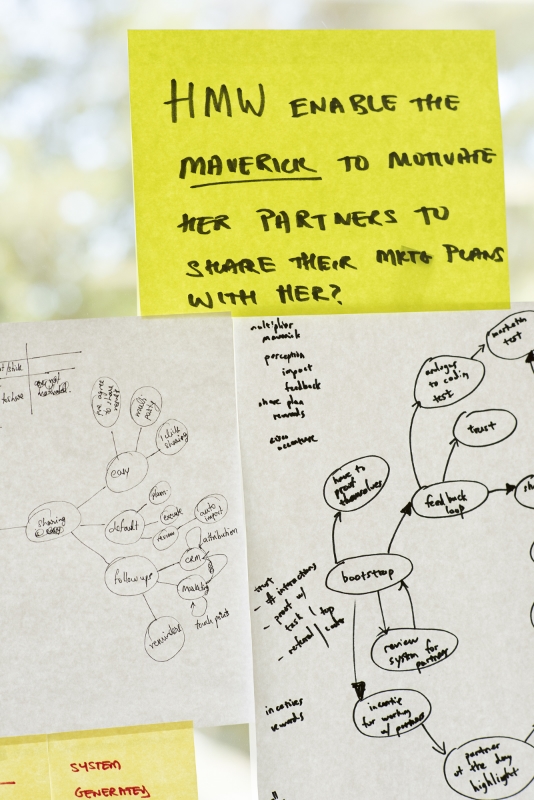 HMW ENABLE THE
MAVERICK TO MOTIVATE
HER PARTNERS TO
SHARE THEIR MKTG PLANS
WITH HER?
easy
1 click
sharing
sharing
default
plans
execute
auto
import
attribution
CRM
follow ups
Marketing
touch point
reminders
multiplier
maverick
perception
impact
feedback
share plan
rewards
analogus
to coding
test
test
trust
have to
proof
themselves
feedback
loop
bootstrap
trust
- # interactions
- proof w/
task
- referral /
review
system for
partner
incentives
rewards
incentive
for working
w/ partners
partner
of the day
highlight
SYSTEM
GENERATED